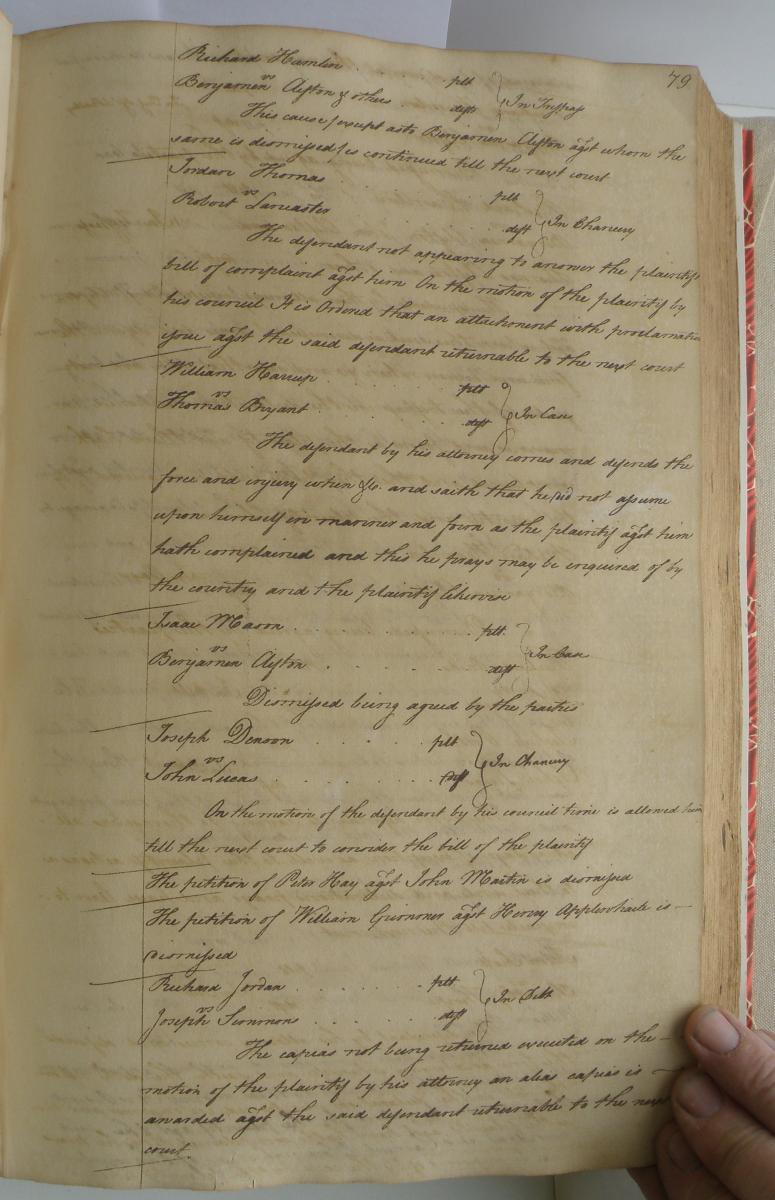 79
Richard Hamlin . . . . . plt
vs } In Trespass
Benjamen Aston & others . . . deft
This cause /except as to Benjamen Aston agst whom the
same is dismissed/ is continued till the next court
Jordan Thomas . . . . . plt
vs } In Chancery
Robert Lancaster . . . . . deft
The defendant not appearing to answer the plaintifs
bill of complaint agst him On the motion of the plaintif by
his council It is Ordered that an attachment with proclamation
issue agst the said defendant returnable to the next court
William Harrup . . . . . plt
vs } In Case
Thomas Bryant . . . . . deft
The defendant by his attorney comes and defends the
force and injury when &c. and saith that he did not assume
upon himself in manner and form as the plaintif agst him
hath complained and this he prays may be enquired of by
the country and the plaintif likewise
Isaac Mason . . . . . plt.
vs } In Case
Benjamen Aston . . . . . deft
Dismissed being agreed by the parties
Joseph Denson . . . . plt
vs } In Chancery
John Lucas . . . . . deft
On the motion of the defendant by his council time is allowed him
till the next court to consider the bill of the plaintif
The petition of Peter Hay agst John Martin is dismissed
The petition of William agst Henry Applewhaite is —
dismissed
Richard Jordan . . . . . plt
vs } In Debt
Joseph Simmons . . . . deft
The capias not being returned executed on the —
motion of the plaintif by his attorney an alias capias is —
awarded agst the said defendant returnable to the next
court.